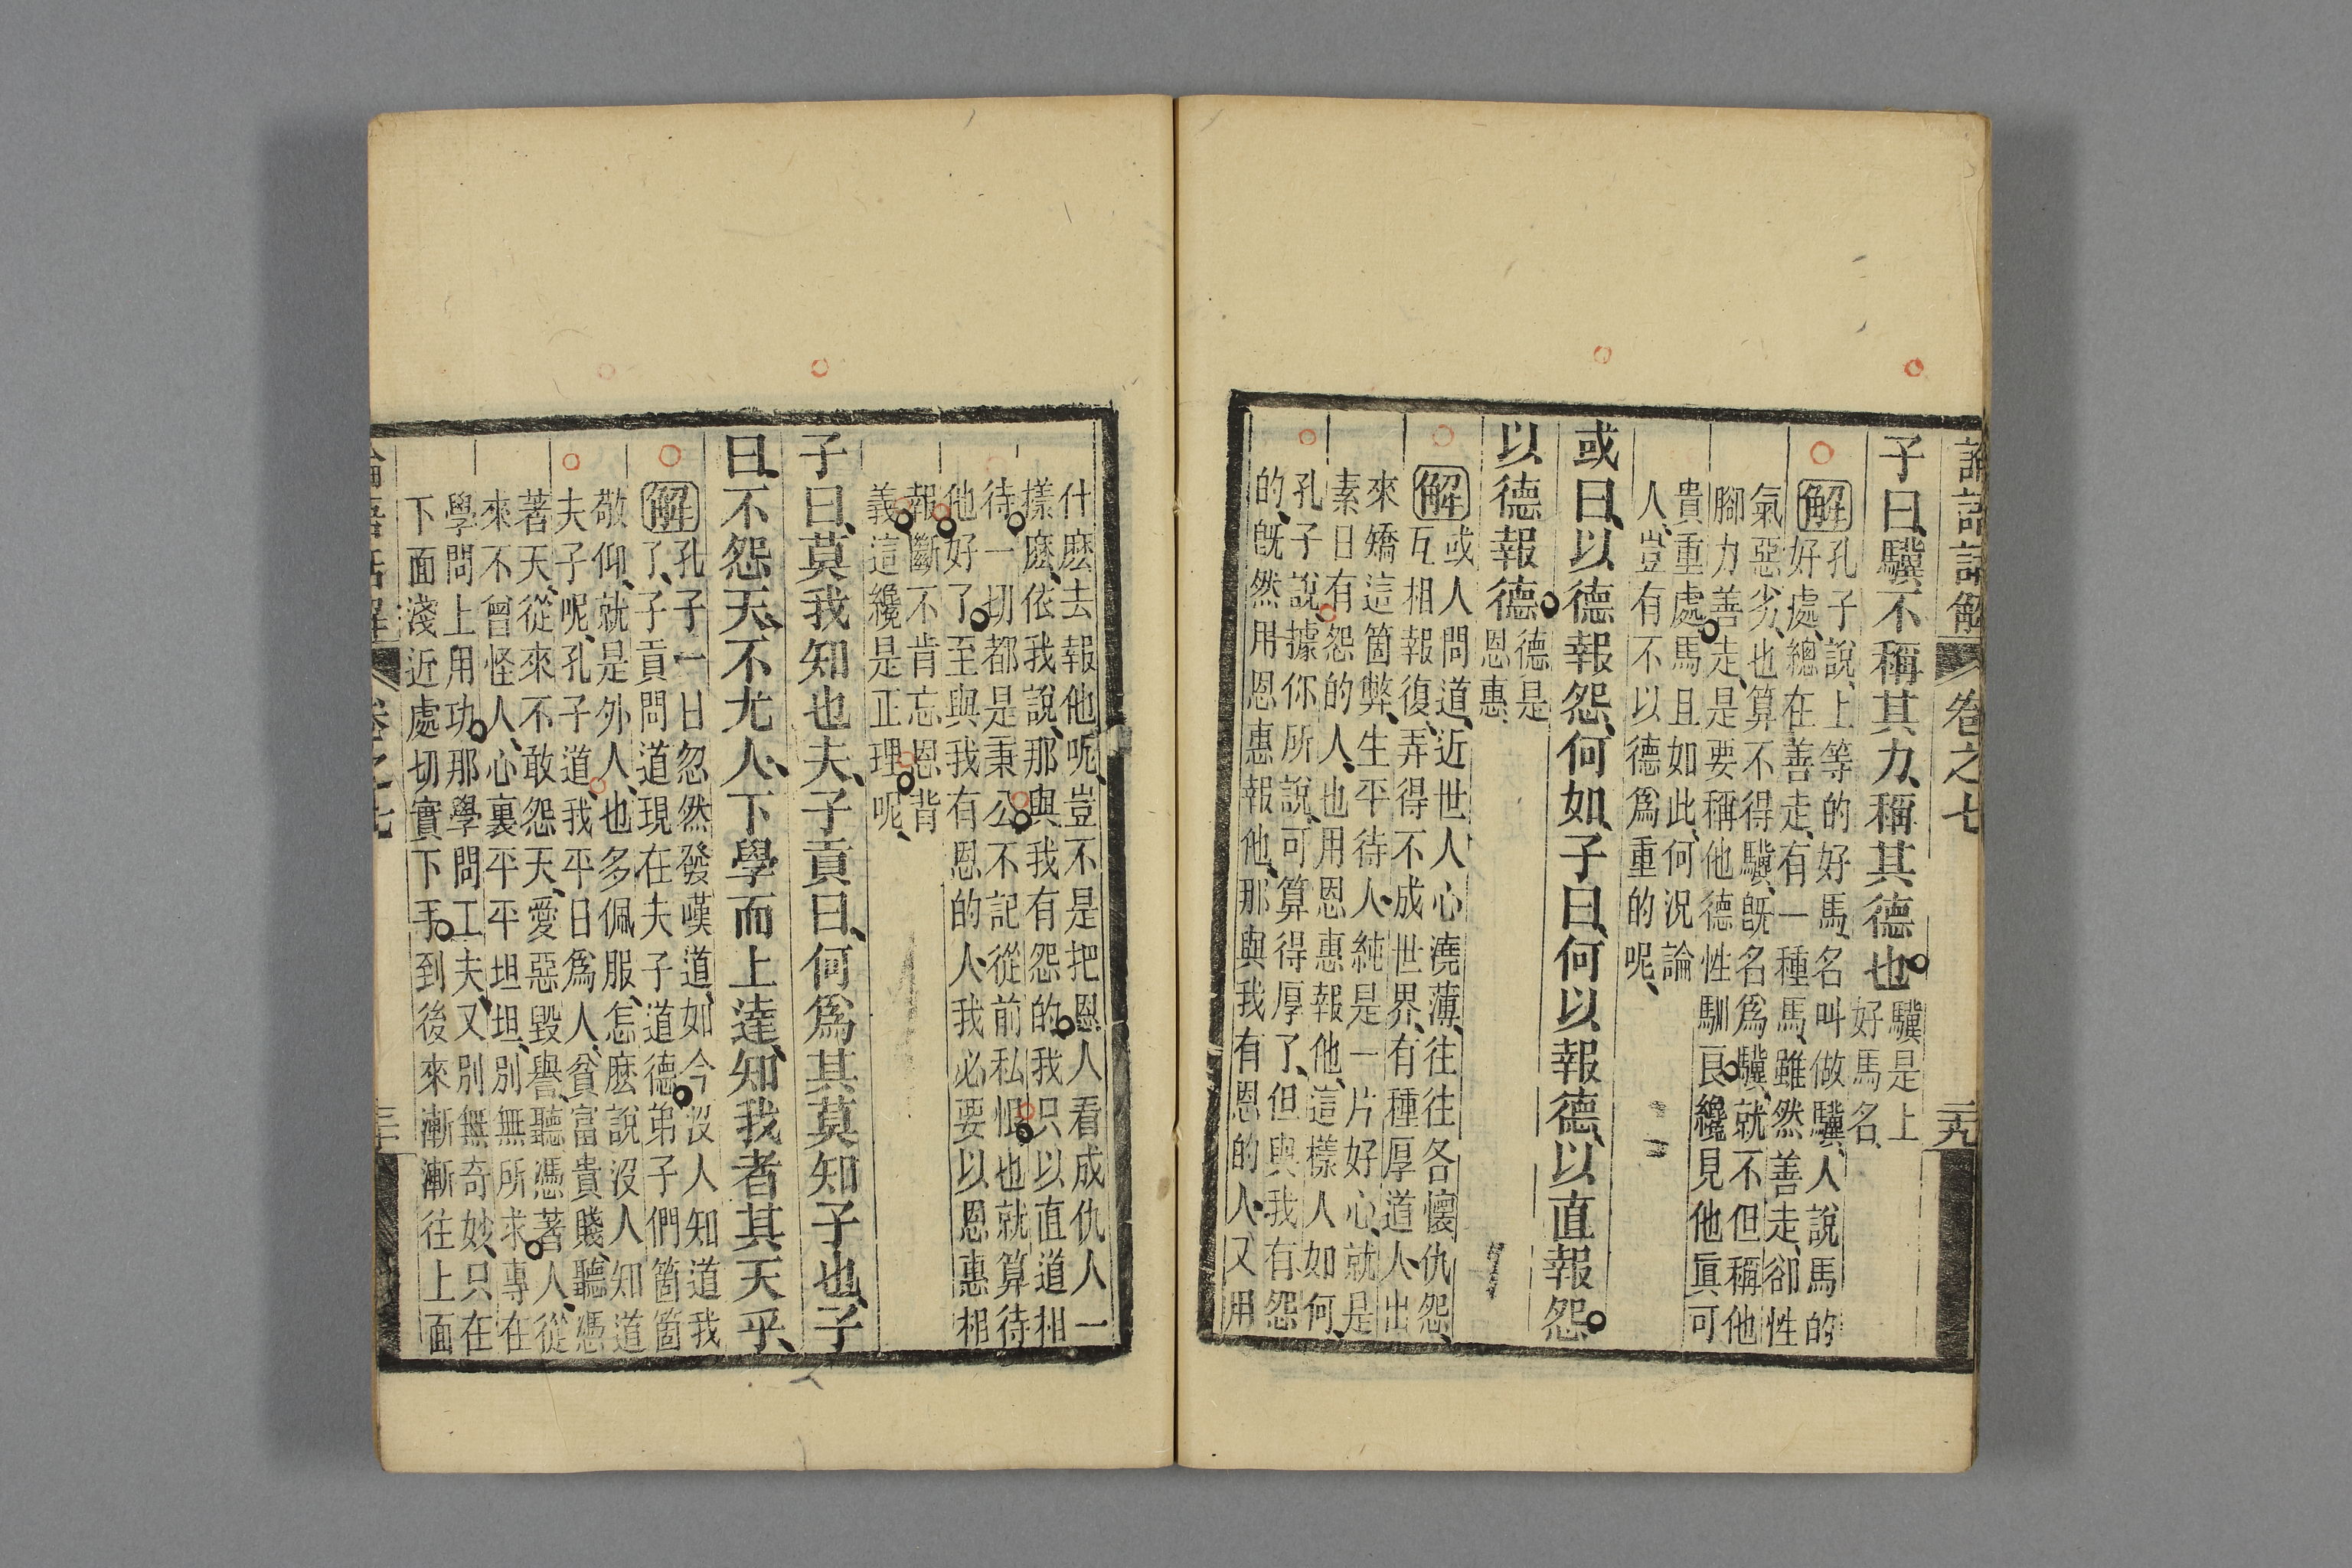 論語話解 卷之七 二十九
子曰、驥不稱其力、稱其德也 驥是上
好馬名、
解 孔子說、上等的好馬、名叫做驥、人說馬的
好處、總在善走、有一種馬、雖然善走、卻性
氣惡劣、也算不得驥、旣名爲驥、就不但稱他
腳力善走、是要稱他德性馴良、纔見他眞可
貴重處、馬且如此、何況論
人、豈有不以德爲重的呢、
或曰、以德報怨、何如、子曰、何以報德、以直報怨
以德報德 德是
恩惠、
解 或人問道、近世人心澆薄、往往各懷仇怨、
互相報復、弄得不成世界、有種厚道人、出
來矯這箇弊、生平待人、純是一片好心、就是
素日有怨的人、也用恩惠報他、這樣人如何、
孔子說、據你所說、可算得厚了、但與我有怨
的、旣然用恩惠報他、那與我有恩的人、又用
什麽去報他呢、豈不是把恩人看成仇人一
樣麽、依我說、那與我有怨的、我只以直道相
待、一切都是秉公、不記從前私恨、也就算待
他好了、至與我有恩的人、我必要以恩惠相
報、斷不肯忘恩背
義、這纔是正理呢、
子曰、莫我知也夫、子貢曰、何爲其莫知子也、子
曰、不怨天、不尤人、下學而上達、知我者其天乎、
解 孔子一日忽然發嘆道、如今沒人知道我
了、子貢問道、現在夫子道德、弟子們箇箇
敬仰、就是外人、也多佩服、怎麽說沒人知道
夫子呢、孔子道、我平日爲人、貧富貴賤、聽憑
著天、從來不敢怨天、愛惡毀譽、聽憑著人、從
來不曾怪人、心裏平平坦坦、別無所求、專在
學問上用功、那學問工夫、又別無奇妙、只在
下面淺近處切實下手、到後來漸漸往上面
論語話解 卷之七 三十